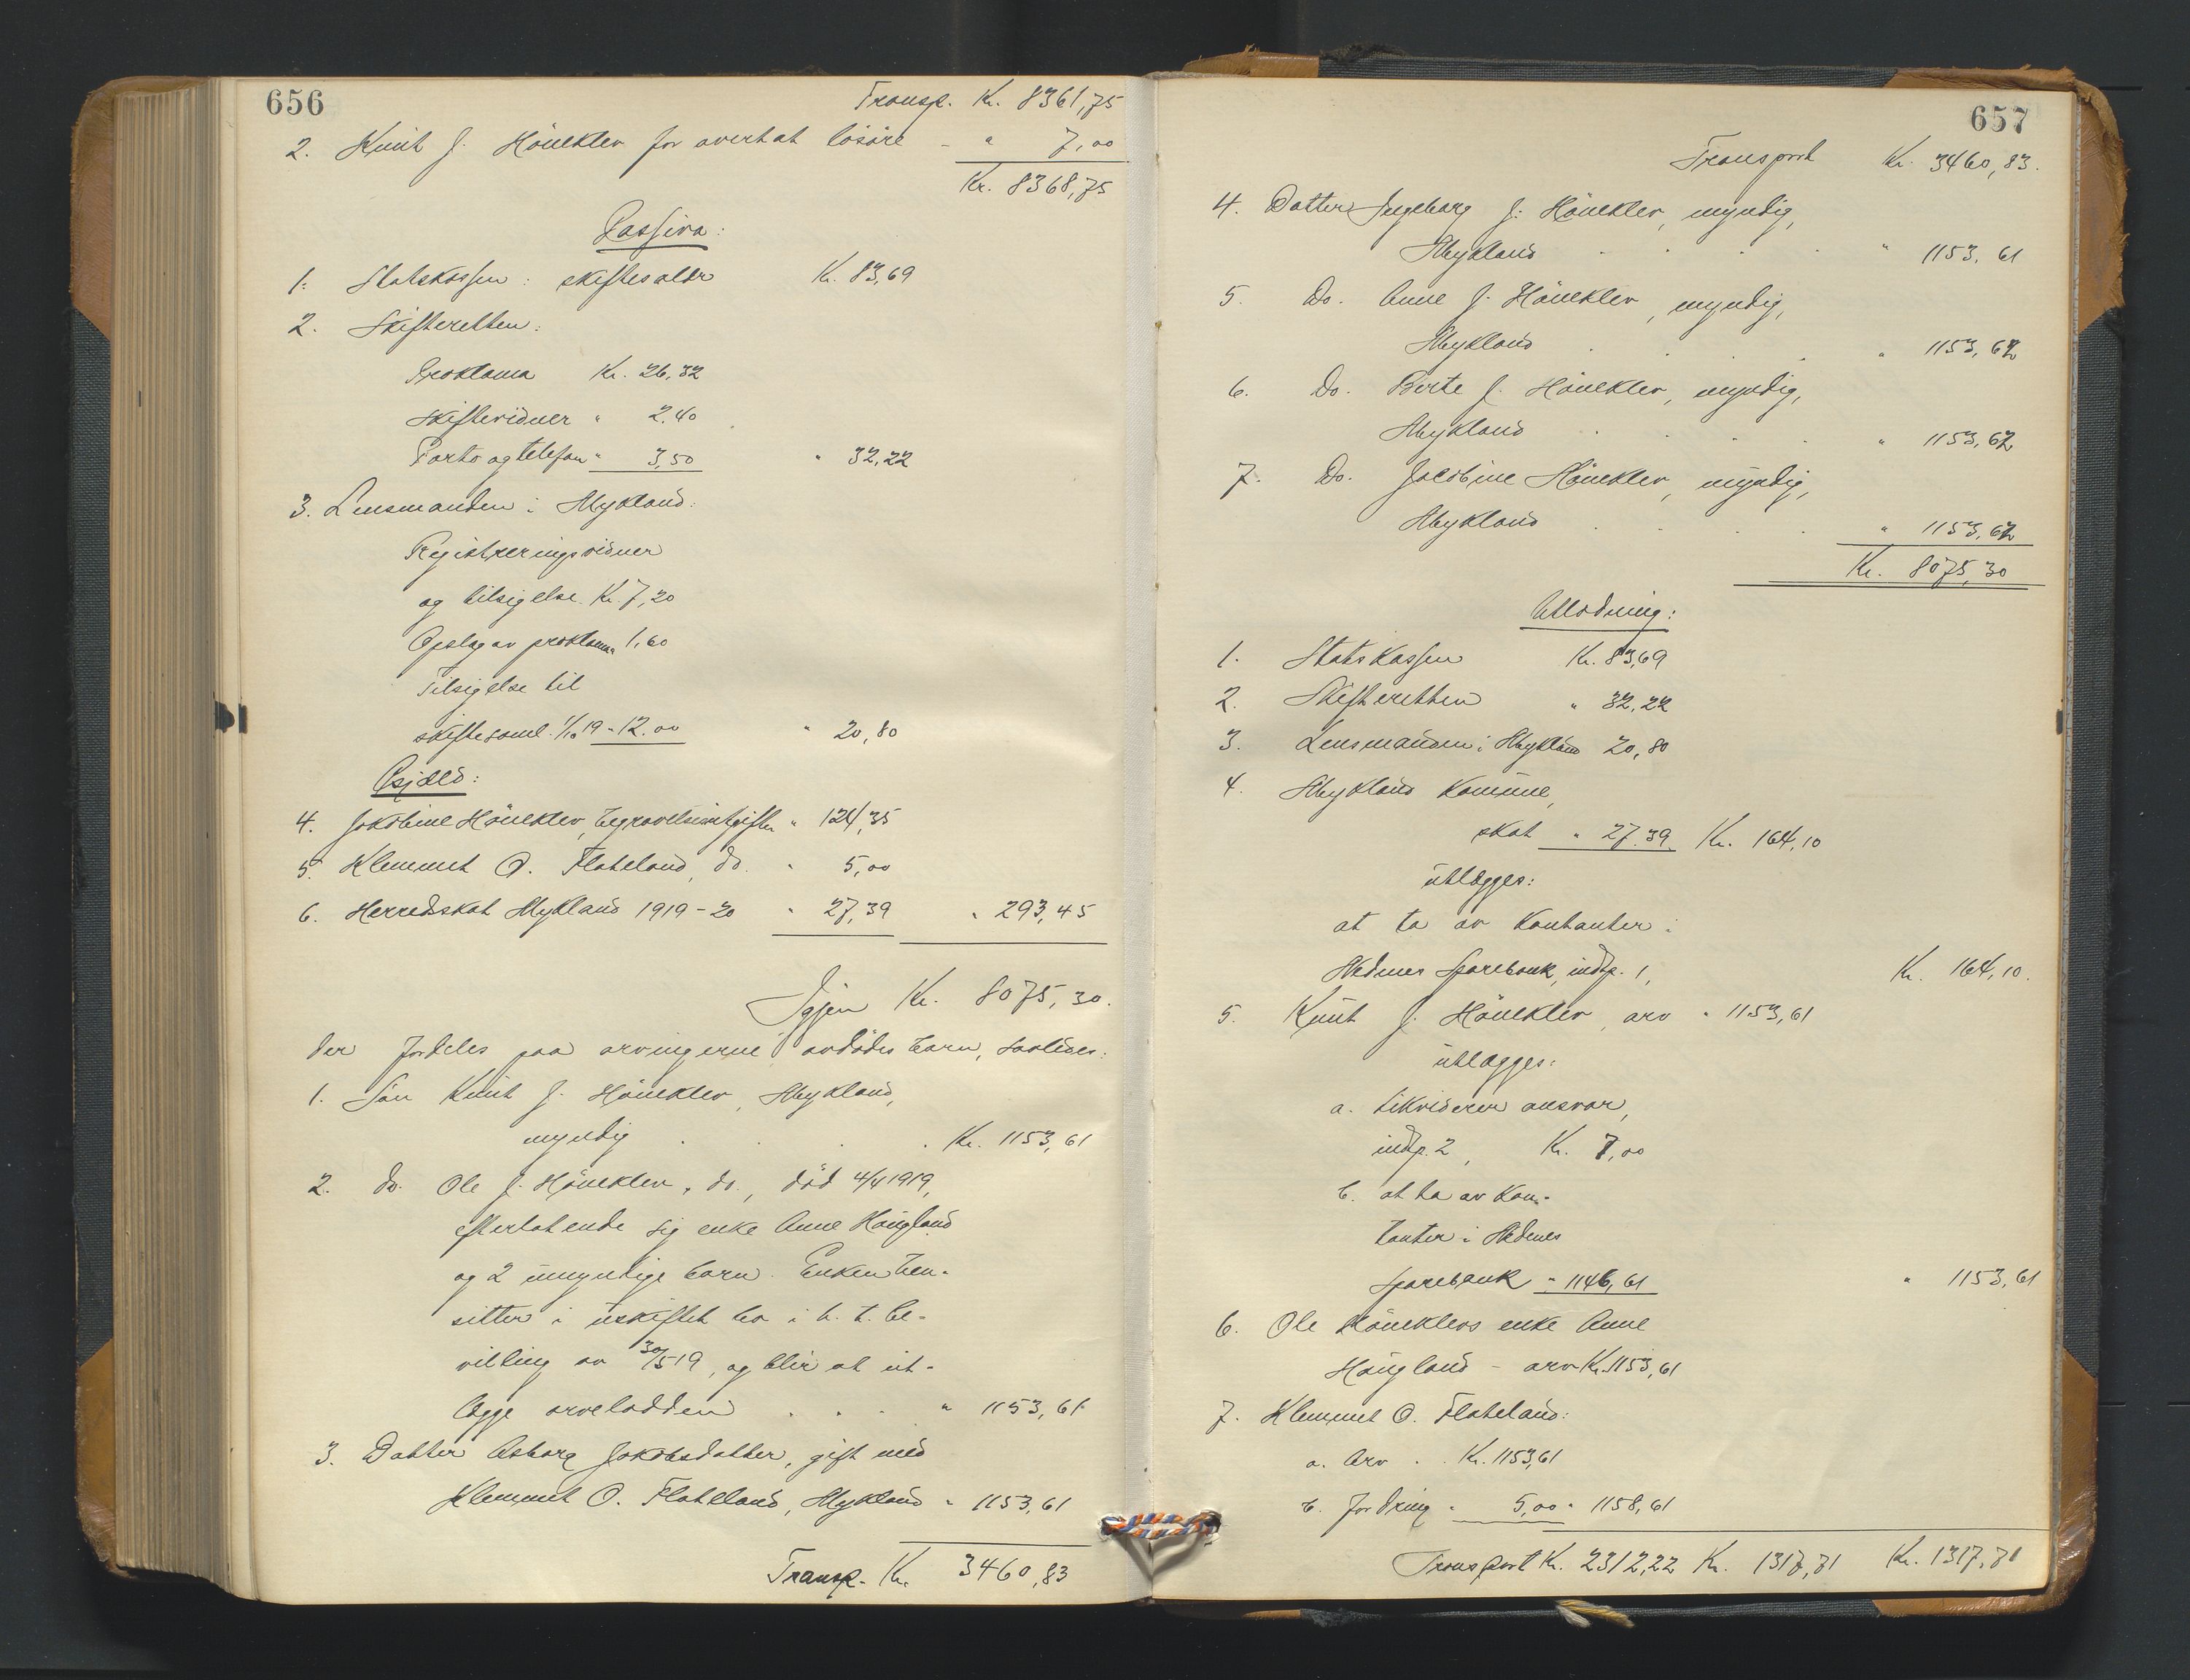 656
Transp. Kr. 8361,75
2. Knut J. Höneklev for overtat lösöre - " 7,00
Kr. 8368,75
Passiva:
1. Statskassen: skiftesaldr Kr. 83,69
2. Skifteretten:
Proklama Kr. 26,32
Skiftevidner " 2.40
Porto og telefon " 3,50 " 32,22
3. Lensmanden i Mykland:
Registreringsvidner
og tilsigelse. Kr. 7,20
Opslag av proklama 1,60
Tilsigelse til
skiftesaml. 1/10 19 - 12.00 " 20,80
Gjæld:
4. Jokobine Höneklev, begravelsesutgifter " 124,35
5. Klemmet O. Flateland, do. " 5,00
6. Herredskat Mykland 1919-20 " 27,39 " 293,45
Igjen Kr. 8075,30.
der fordeles paa arvingerne avdödes barn, saaledes:
1. Sön Knut J. Höneklev, Mykland,
myndig . . . . Kr. 1153,61
2. Do. Ole J. Höneklev, do., död 4/4 1919,
efterlatende sig enke Anne Haugland
og 2 umyndige barn. Enken hen-
sitter i uskiftet bo i h. t. be-
villing av 30/5 19, og blir at ut-
lægge arvelodden . . . " 1153,61
3. Datter Asborg Jokobsdatter, gift med
Klemmet O. Flateland, Mykland " 1153,61
Transp. Kr. 3460,83
657
Transport Kr. 3460,83.
4. Datter Ingeborg J. Höneklev, myndig,
Mykland . . . . " 1153,61
5. Do. Anne J. Höneklev, myndig,
Mykland . . . . " 1153,62
6. Do. Berte J. Höneklev, myndig,
Mykland . . . . " 1153,62
7. Do. Jacobine Höneklev, myndig,
Mykland . . . . " 1153,62
Kr. 8075,30
Utlodning:
1. Statskassen Kr. 83,69
2. Skifteretten " 32,22
3. Lensmanden i Mykland 20,80
4. Mykland Komune,
skat " 27.39 Kr. 164,10
utlægges:
at ta av Kontanter i
Nedenes Sparebank, indtp. 1, Kr. 164,10.
5. Knut J. Höneklev, arv " 1153,61
utlægges:
a. Likviderer ansvar,
indtp. 2, Kr. 7,00
b. at ta av Kon-
tanter i Nedenes
Sparebank " 1146,61 " 1153,61
6. Ole Höneklevs enke Anne
Haugland - arv Kr. 1153,61
7. Klemmet O. Flateland:
a. Arv . . Kr. 1153,61
b. fordring " 5,00 " 1158,61
Transport Kr. 2312,22 Kr. 1317,71 Kr. 1317,71